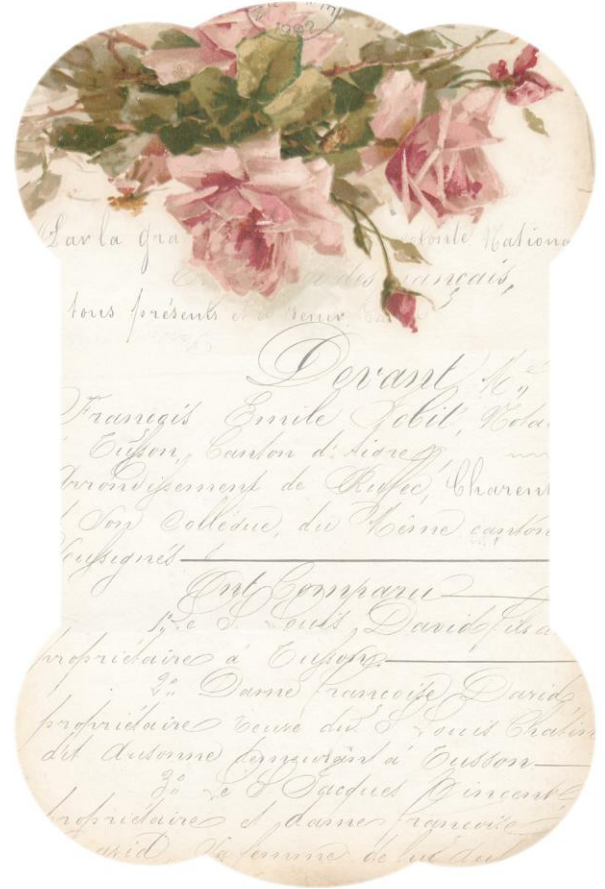 1902
Par la gra volonté Nationa
des ançais,
tous présents et à venir
Devant Me
François Emile Nota
Canton d'Aigre
Arrondissement de Ruffec, Charent
Son Collègue, du Même canton
soussignés
Ont Comparu
1º Le S Louis David
propriétaire à Tusson
2º Dame Françoise David
propriétaire veuve du S Louis
dit Ausonne demeurant à Tusson
3º Le S Jacques Vincent
propriétaire et dame Françoise
David, sa femme de lui